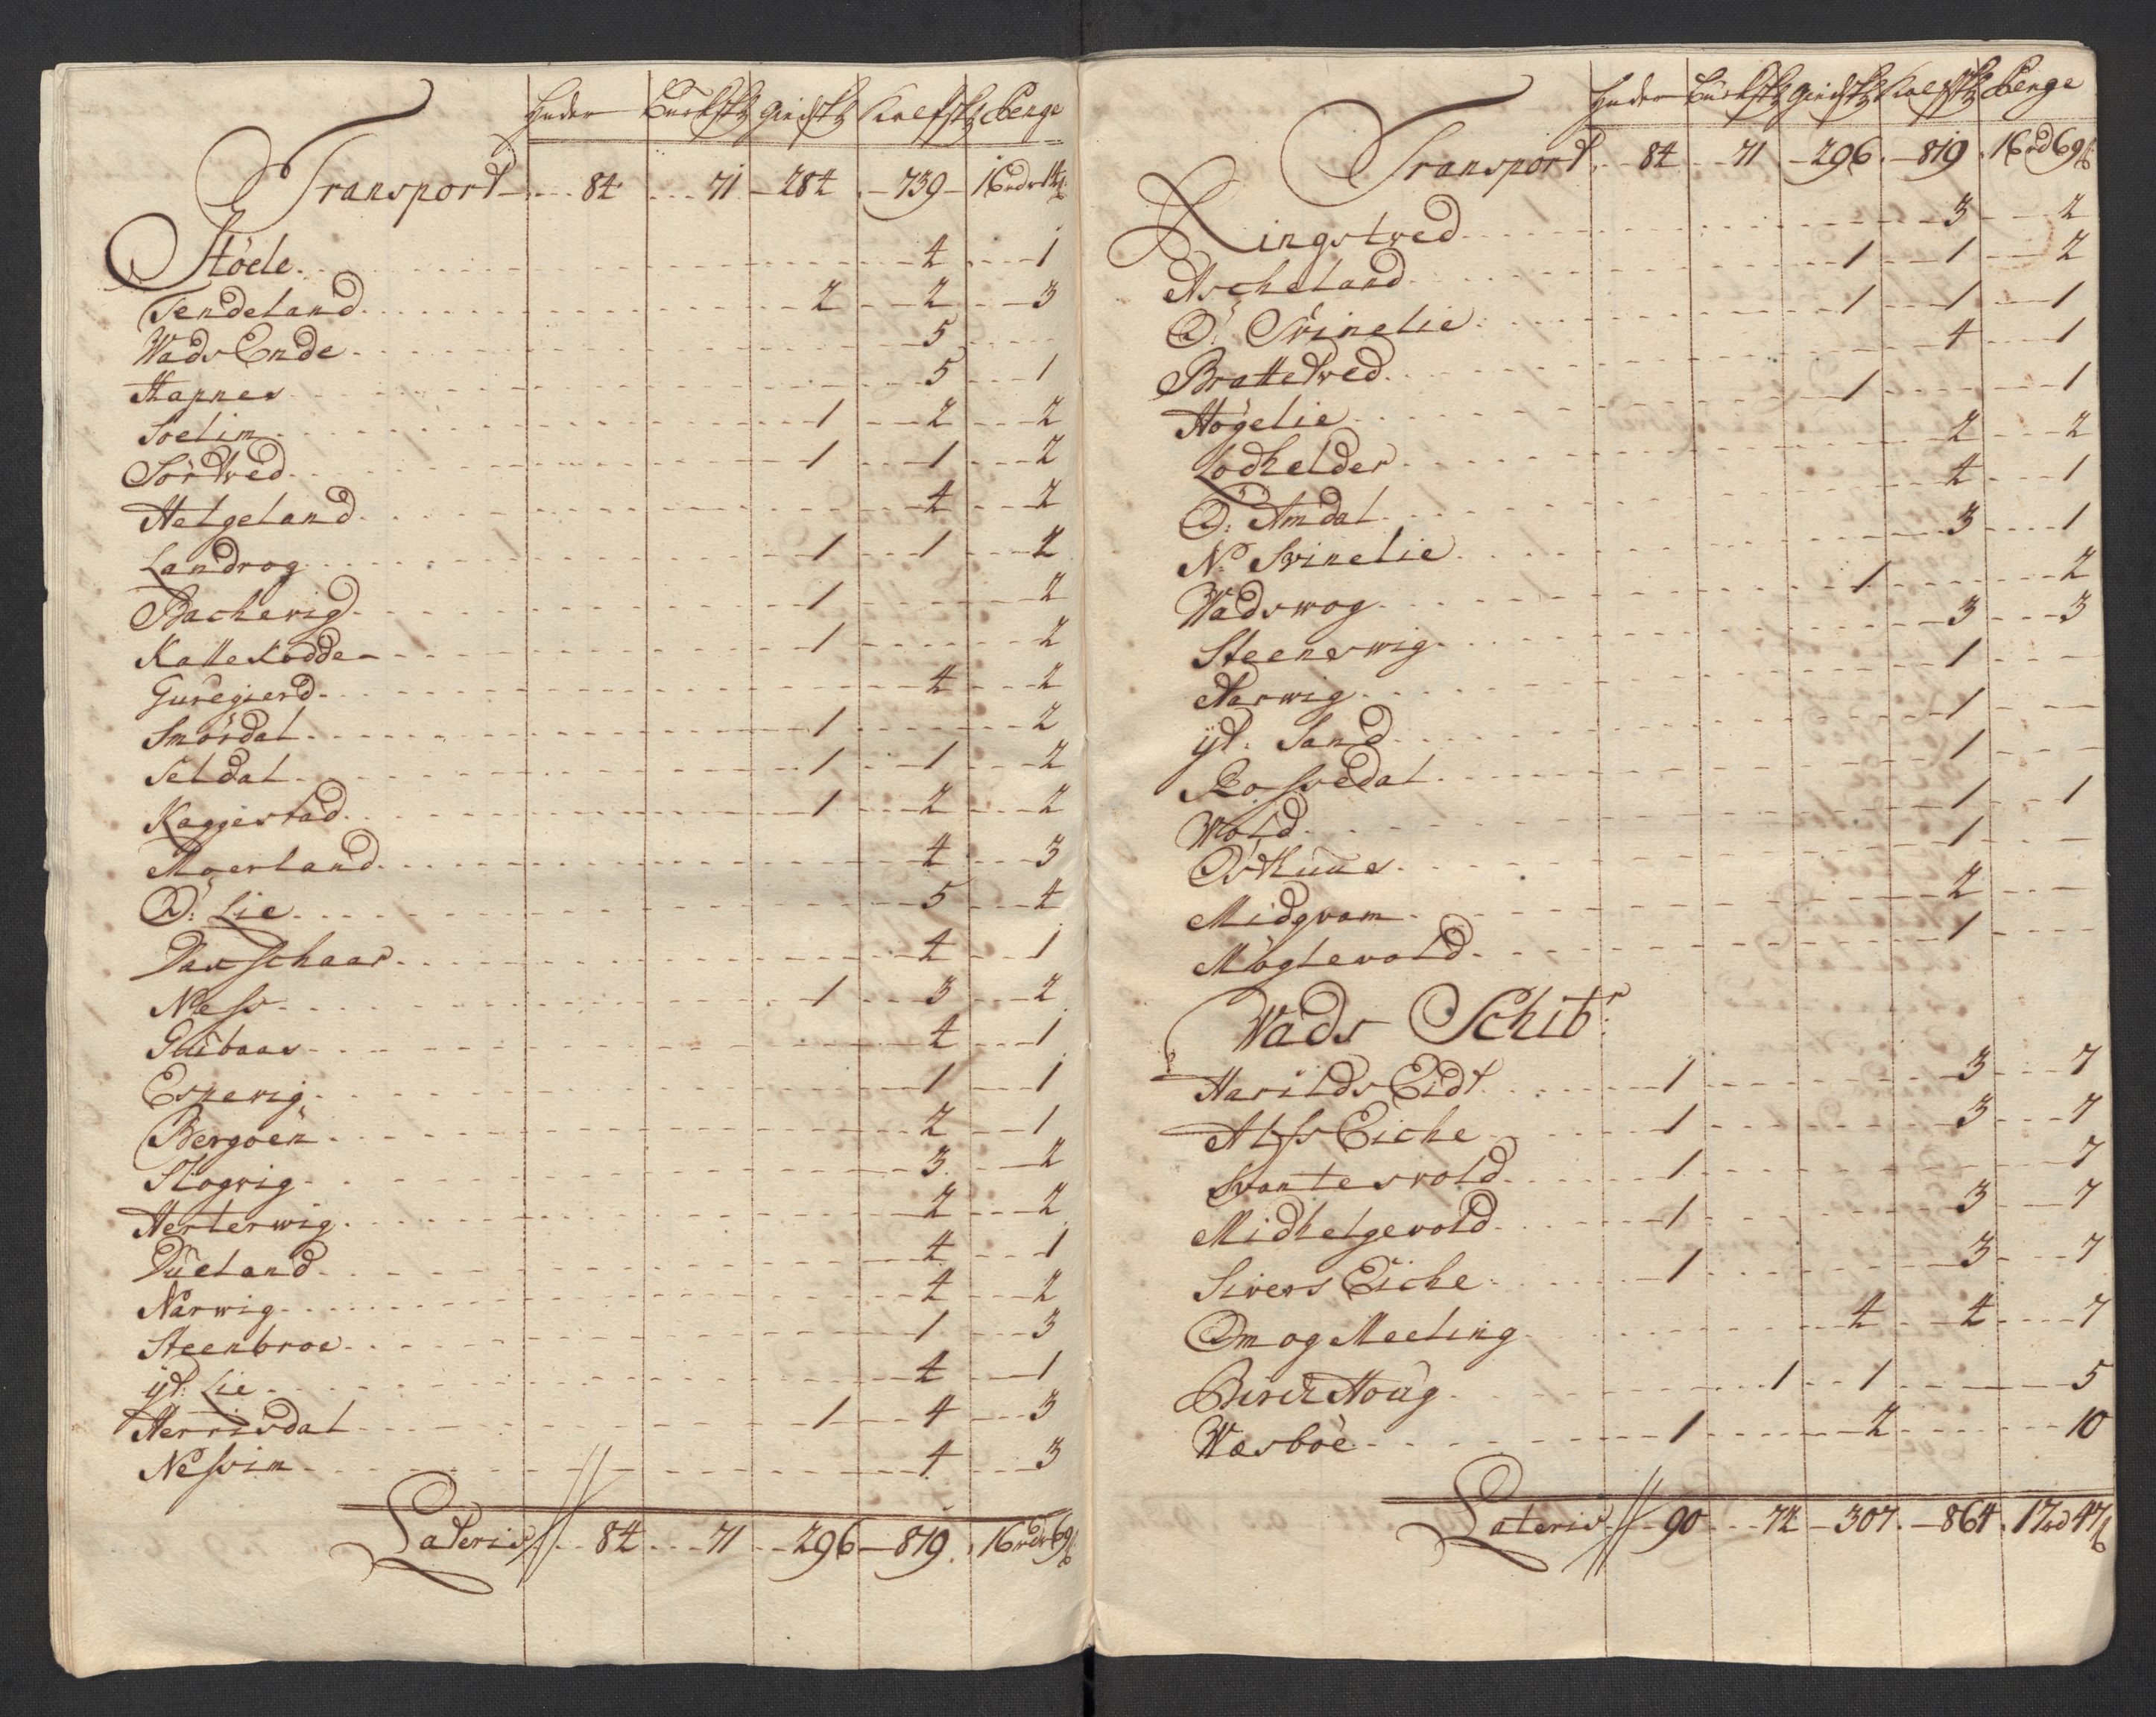 Huder Buchsk Giedsk Kalfsk Penge
Transport 84 71 284 739 16 rdr 14 ß
Støele 4 1
Tendeland 2 2 3
Wads Ende 5
Hapnes 5 1
Soelim 1 2 2
Sørtved 1 1 2
Helgeland 4 2
Landrog 1 1 2
Bachevig 1 2
Kattekodde 1 2
Guregierd 4 2
Smørdal 1 2
Seldal 1 1 2
Kaggestad 1 2 2
Moerland 4 3
Ö: Lie 5 4
Daxschaar 4 1
Ness 1 3 2
Gulbaas 4 1
Espevig 1 1
Bergoën 2 1
Skogvig 3 2
Herterwig 2 2
Dueland 4 1
Narwig 4 2
Steenbroe 1 3
yt: Lie 4 1
Herrisdal 1 4 3
Nessim 4 3
Lateris 84 71 296 819 16 rdr 69 ß
Huder Buchsk Giedsk Kalfsk Penge
Transport 84 71 296 819 16 rd 69 ß
Ringstved 3 2
Ascheland 1 1 2
Ö: Svinelie 1 1 1
Brattetved 4 1
Høgelie 1 1
Lodhelder 2 2
Ö: Amdal 4 1
N: Svinelie 3 1
Wadswog 1 2
Steenswig 3 3
Narwig 1
yt: Sand 1
Rossedal 1
Wold 1 1
Østhuus 1
Midgvam 2
Møglevold 1
Wads Schibr:
Harilds Eidt 1 3 7
Alfs Eiche 1 3 7
Svartesvold 1 7
Midhelgevold 1 3 7
Sivers Eiche 1 3 7
Om og Meeling 4 4 7
Birche Houg 1 1 5
Wasbøe 1 2 10
Lateris 90 72 307 864 17 rd 47 ß